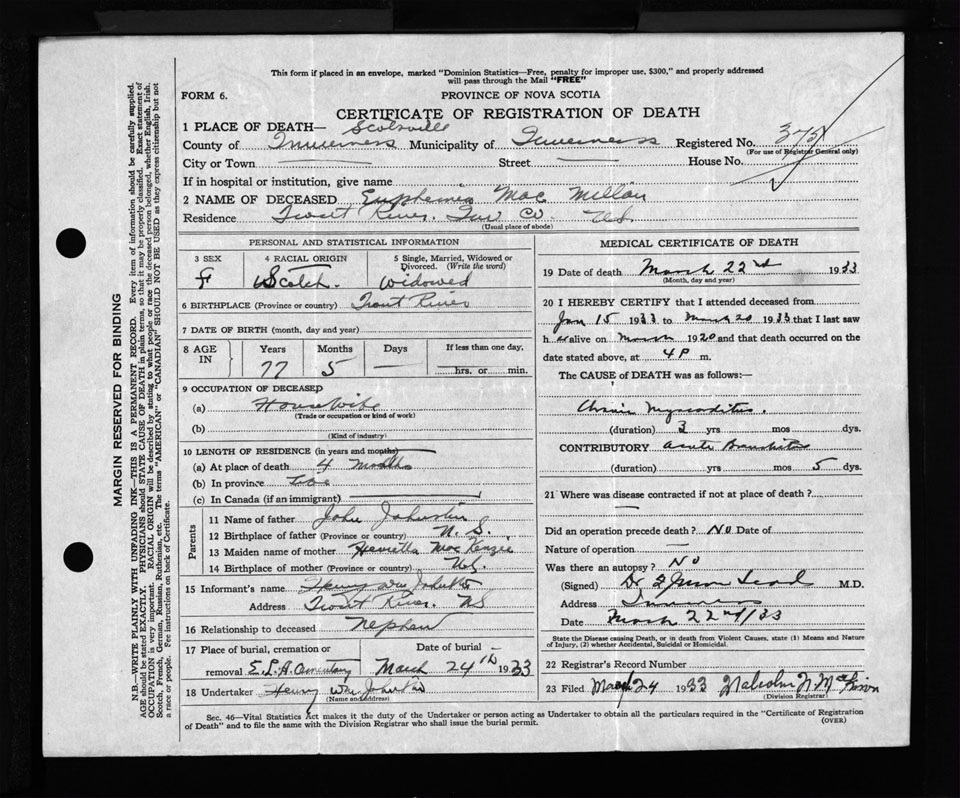 This form if placed in an envelope, marked "Dominion Statistics—Free, penalty for improper use, $300," and properly addressed
will pass through the Mail "FREE"
FORM 6.
PROVINCE OF NOVA SCOTIA
CERTIFICATE OF REGISTRATION OF DEATH
1 PLACE OF DEATH— Scotsville
County of Inverness Municipality of Inverness Registered No. 375
(For use of Registrar General only)
City or Town Street House No.
If in hospital or institution, give name
2 NAME OF DECEASED Euphemia Mac Millan
Residence Trout River. Inv Co. NS.
(Usual place of abode)
PERSONAL AND STATISTICAL INFORMATION
3 SEX 4 RACIAL ORIGIN 5 Single, Married, Widowed or Divorced. (Write the word)
F Scotch. Widowed
6 BIRTHPLACE (Province or country) Trout River
7 DATE OF BIRTH (month, day and year)
8 AGE IN Years Months Days If less than one day,
77 5 — hrs. or min.
9 OCCUPATION OF DECEASED
(a) Housewife
(Trade or occupation or kind of work)
(b)
(Kind of industry)
10 LENGTH OF RESIDENCE (in years and months)
(a) At place of death 4 Months
(b) In province Life
(c) In Canada (if an immigrant)
Parents
11 Name of father John Johnston
12 Birthplace of father (Province or country) N. S.
13 Maiden name of mother Henrietta Mac Kenzie
14 Birthplace of mother (Province or country) NS.
15 Informant's name Henry Johnston
Address Trout River. NS
16 Relationship to deceased Nephew
17 Place of burial, cremation or Date of burial—
removal Cemetary March 24th 1933
18 Undertaker Henry Johnston
(Name and address)
MEDICAL CERTIFICATE OF DEATH
19 Date of death March 22nd 1933
(Month, day and year)
20 I HEREBY CERTIFY that I attended deceased from
Jan 15 1933 to March 20 1933 that I last saw
h er alive on March 1920 and that death occurred on the
date stated above, at 4 P m.
The CAUSE of DEATH was as follows:—
Chronic Myocarditis.
(duration) 3 yrs mos dys.
CONTRIBUTORY Acute Bronchitis
(duration) yrs mos 5 dys.
21 Where was disease contracted if not at place of death?
—
Did an operation precede death? No Date of
Nature of operation —
Was there an autopsy? No
(Signed) Dr M.D.
Address Inverness
Date March 22nd/33
State the Disease causing Death, or in death from Violent Causes, state (1) Means and Nature
of Injury, (2) whether Accidental, Suicidal or Homicidal.
22 Registrar's Record Number
23 Filed March 24 1933 Malcolm
(Division Registrar)
Sec. 46—Vital Statistics Act makes it the duty of the Undertaker or person acting as Undertaker to obtain all the particulars required in the "Certificate of Registration
of Death" and to file the same with the Division Registrar who shall issue the burial permit.
(OVER)
MARGIN RESERVED FOR BINDING
N.B.—WRITE PLAINLY WITH UNFADING INK—THIS IS A PERMANENT RECORD. Every item of information should be carefully supplied.
AGE should be stated EXACTLY. PHYSICIANS should STATE CAUSE OF DEATH in plain terms, so that it may be properly classified. Exact statement of
OCCUPATION is very important. RACIAL ORIGIN will be described by stating to what people or race the deceased person belonged, whether English, Irish,
Scotch, French, German, Russian, Ruthenian, etc. The terms "AMERICAN" or "CANADIAN" SHOULD NOT BE USED as they express citizenship but not
a race or people. Fee Instructions on back of Certificate.